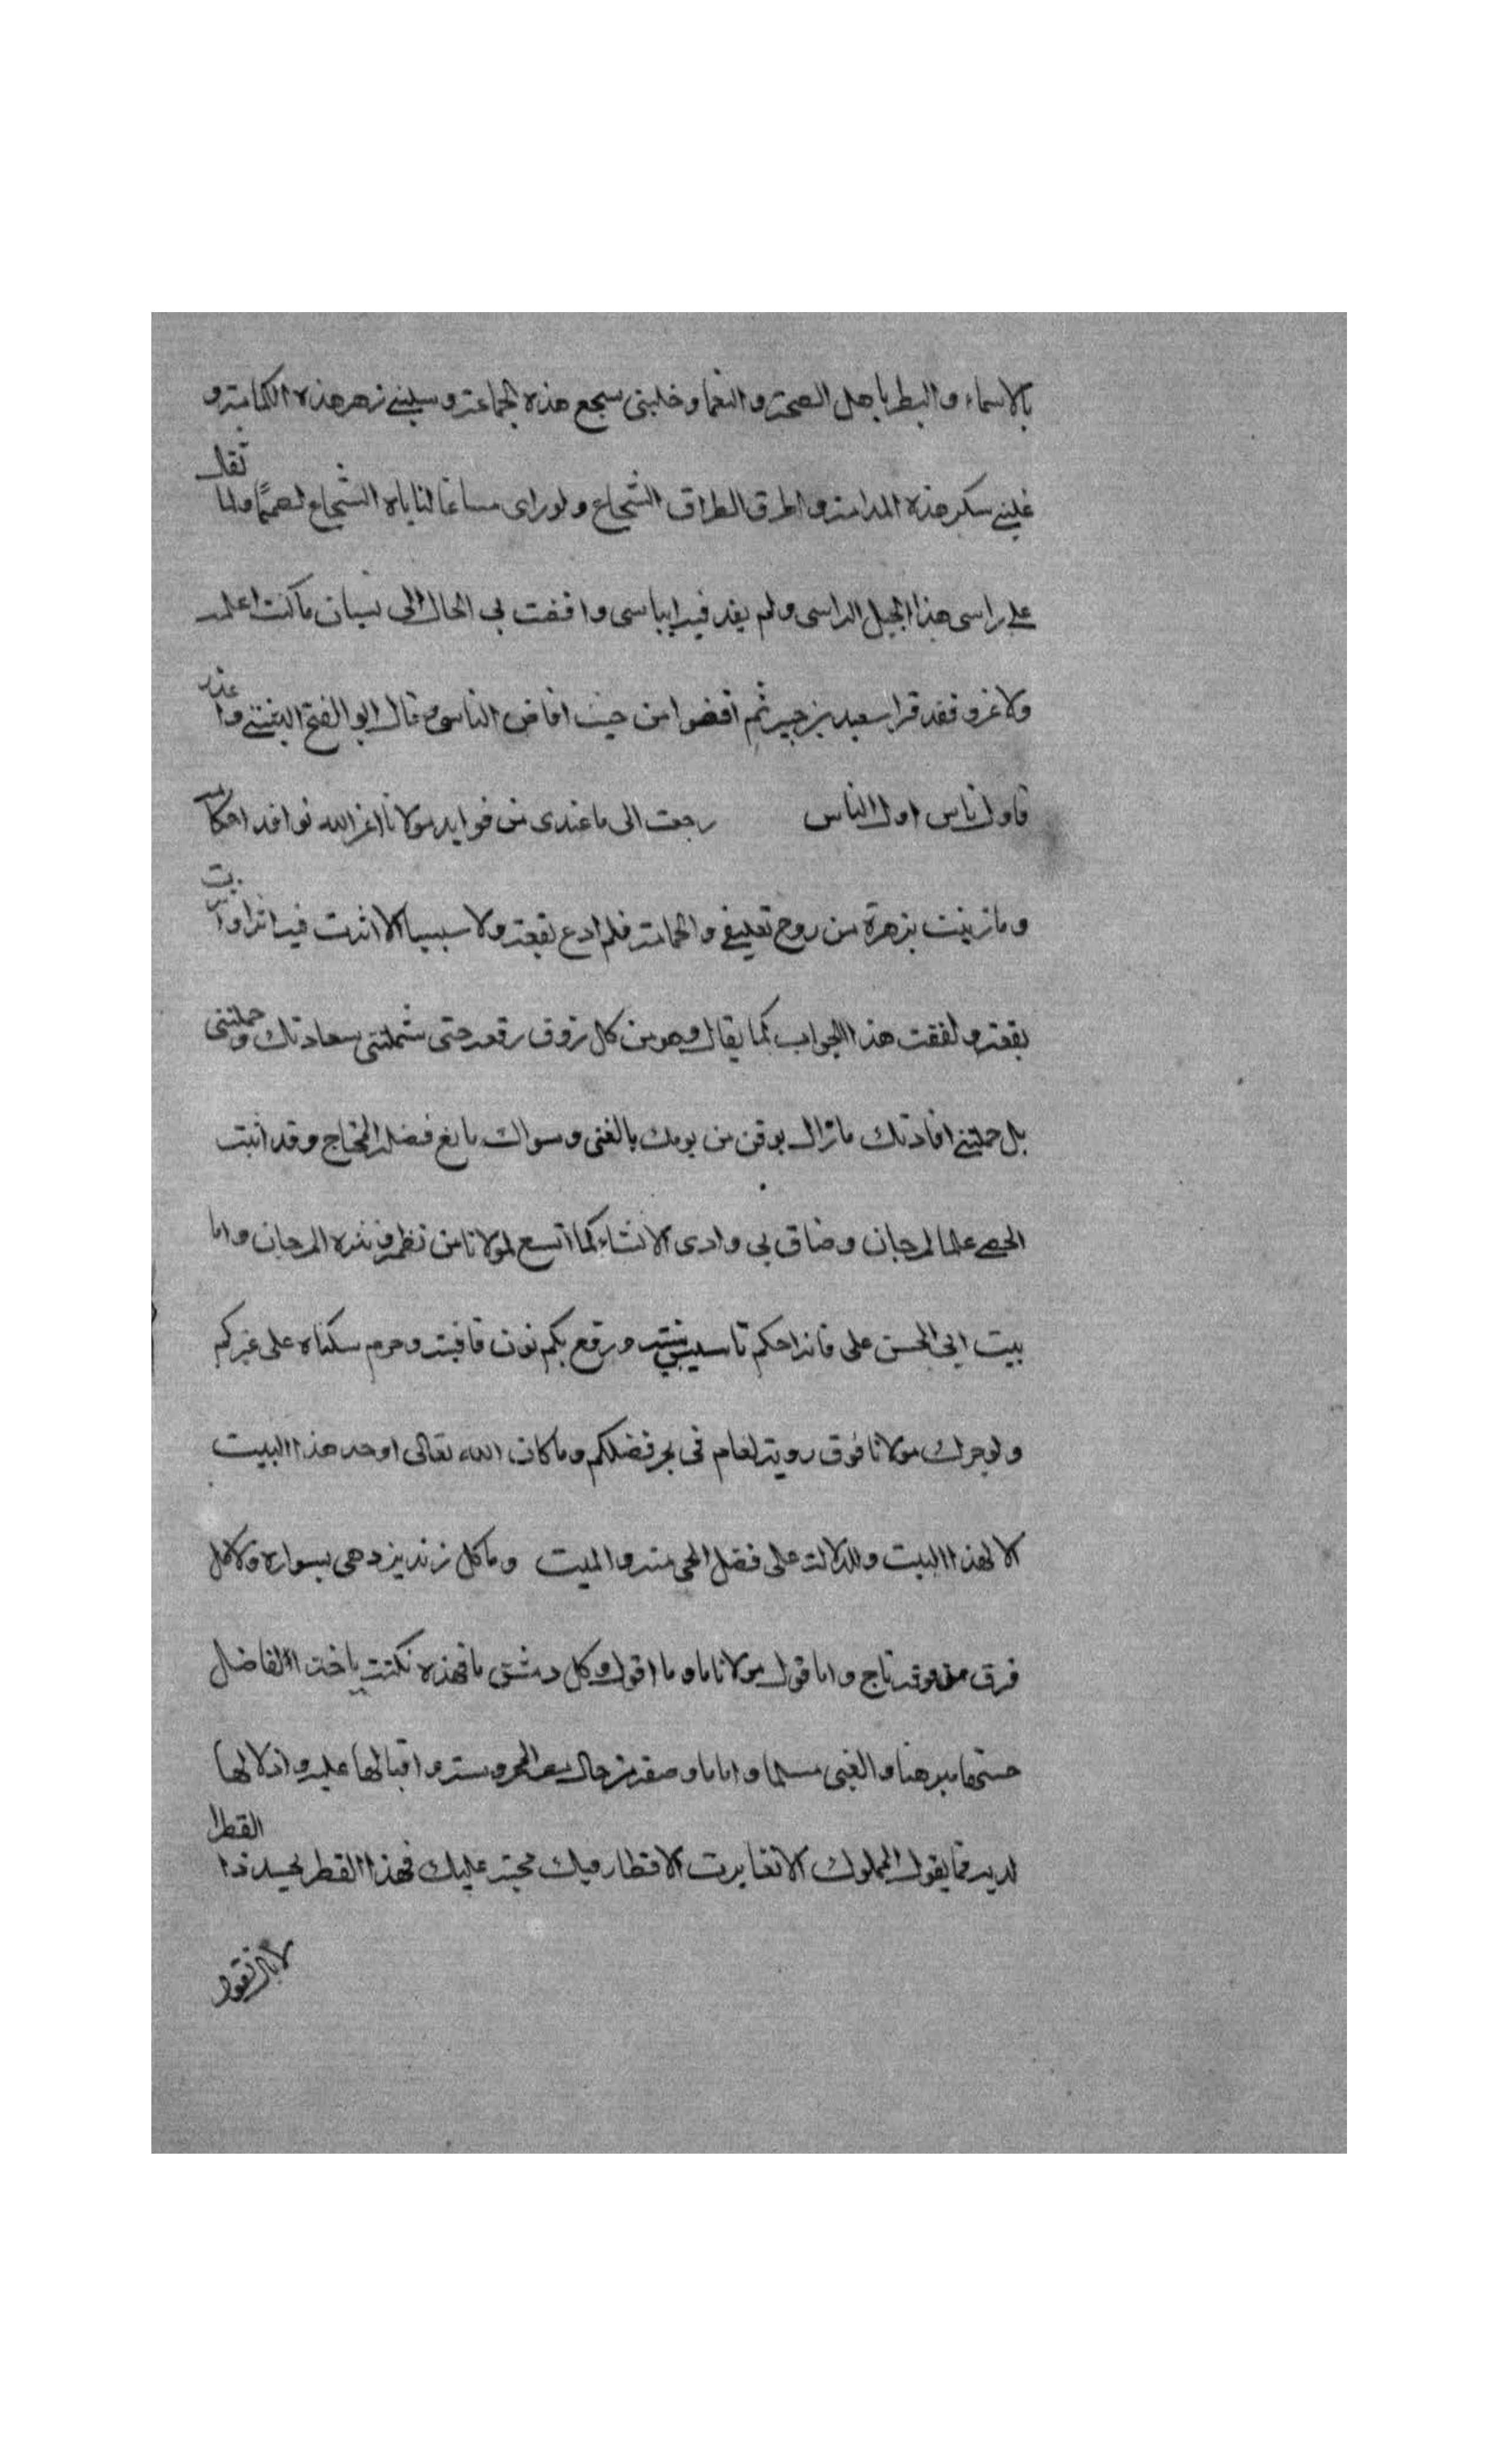 بالاسماء والبطر باهل الصحة والنعما وخلبنى سجع هذه الحمامة وسلبنى زهر هذه الكمامة و
غلبنى سكر هذه المدامة واطرق اطراق الشجاع ولو راى مساغا لناباه الشجاع لصمما ولما ثقل
على راسى هذا الجبل الراسى ولم يفد فيه اباسى وافضت بى الحال الى نسيان ما كنت اعلمه
ولا غرو فقد قرا سعيد بن جبير ثم افيضوا من حيث افاض الناسى وقال ابو الفتح البستى واعذر
فاول ناس اول الناس رجعت الى ما عندى من فوايد مولانا اعز الله نوافد احكامه
وما زينت بزهرة من روح تعليقى والحامة فلم ادع بقعة ولا سببا الا اثرت فيه اثرا وا
بقعة ولفقت هذا الجواب كما يقال وهو من كل زوق رقعة حتى شملتنى سعادتك وحملتنى
بل حملتنى افادتك ما تزال بوقن من يومك بالغنى وسواك مانع فضله المحتاج وقد اثبت
الحصى على المرجان وضاق بى وادى الانشاء كما اتسع لمولانا من نظمه ونثره المرجان واما
بيت ابى الحسن على فانه احكم تاسيس بيته ورفع بكم نون قافيته وحرم سكناه على غيركم
ولو جرك مولانا فوق رويته لعام فى بحر فضلكم وما كان الله تعالى اوحد هذا البيت
الا لهذا البيت وللدلالة على فضل الحى منه والميت وما كل زند يزدهى بسواره ولا كل
فرق فوقه تاج واما قول مولانا ماو ما اقول وكل دمشق ما فهذه نكتة ياخذ الفاضل
حسنها مبرهنا والغبى مسلما واما ما وصفه من حال المحروسة واقبالها عليه واذلالها
لديه فما يقول المملوك الا تغايرت الاقطار فيك محبة عليك فهذا القطر يحسد ذا القطرا